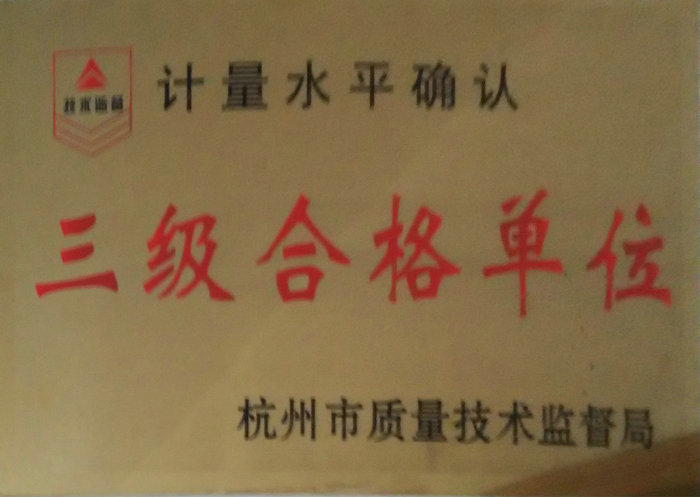 技术监督
计量水平确认
三级合格单位
杭州市质量技术监督局